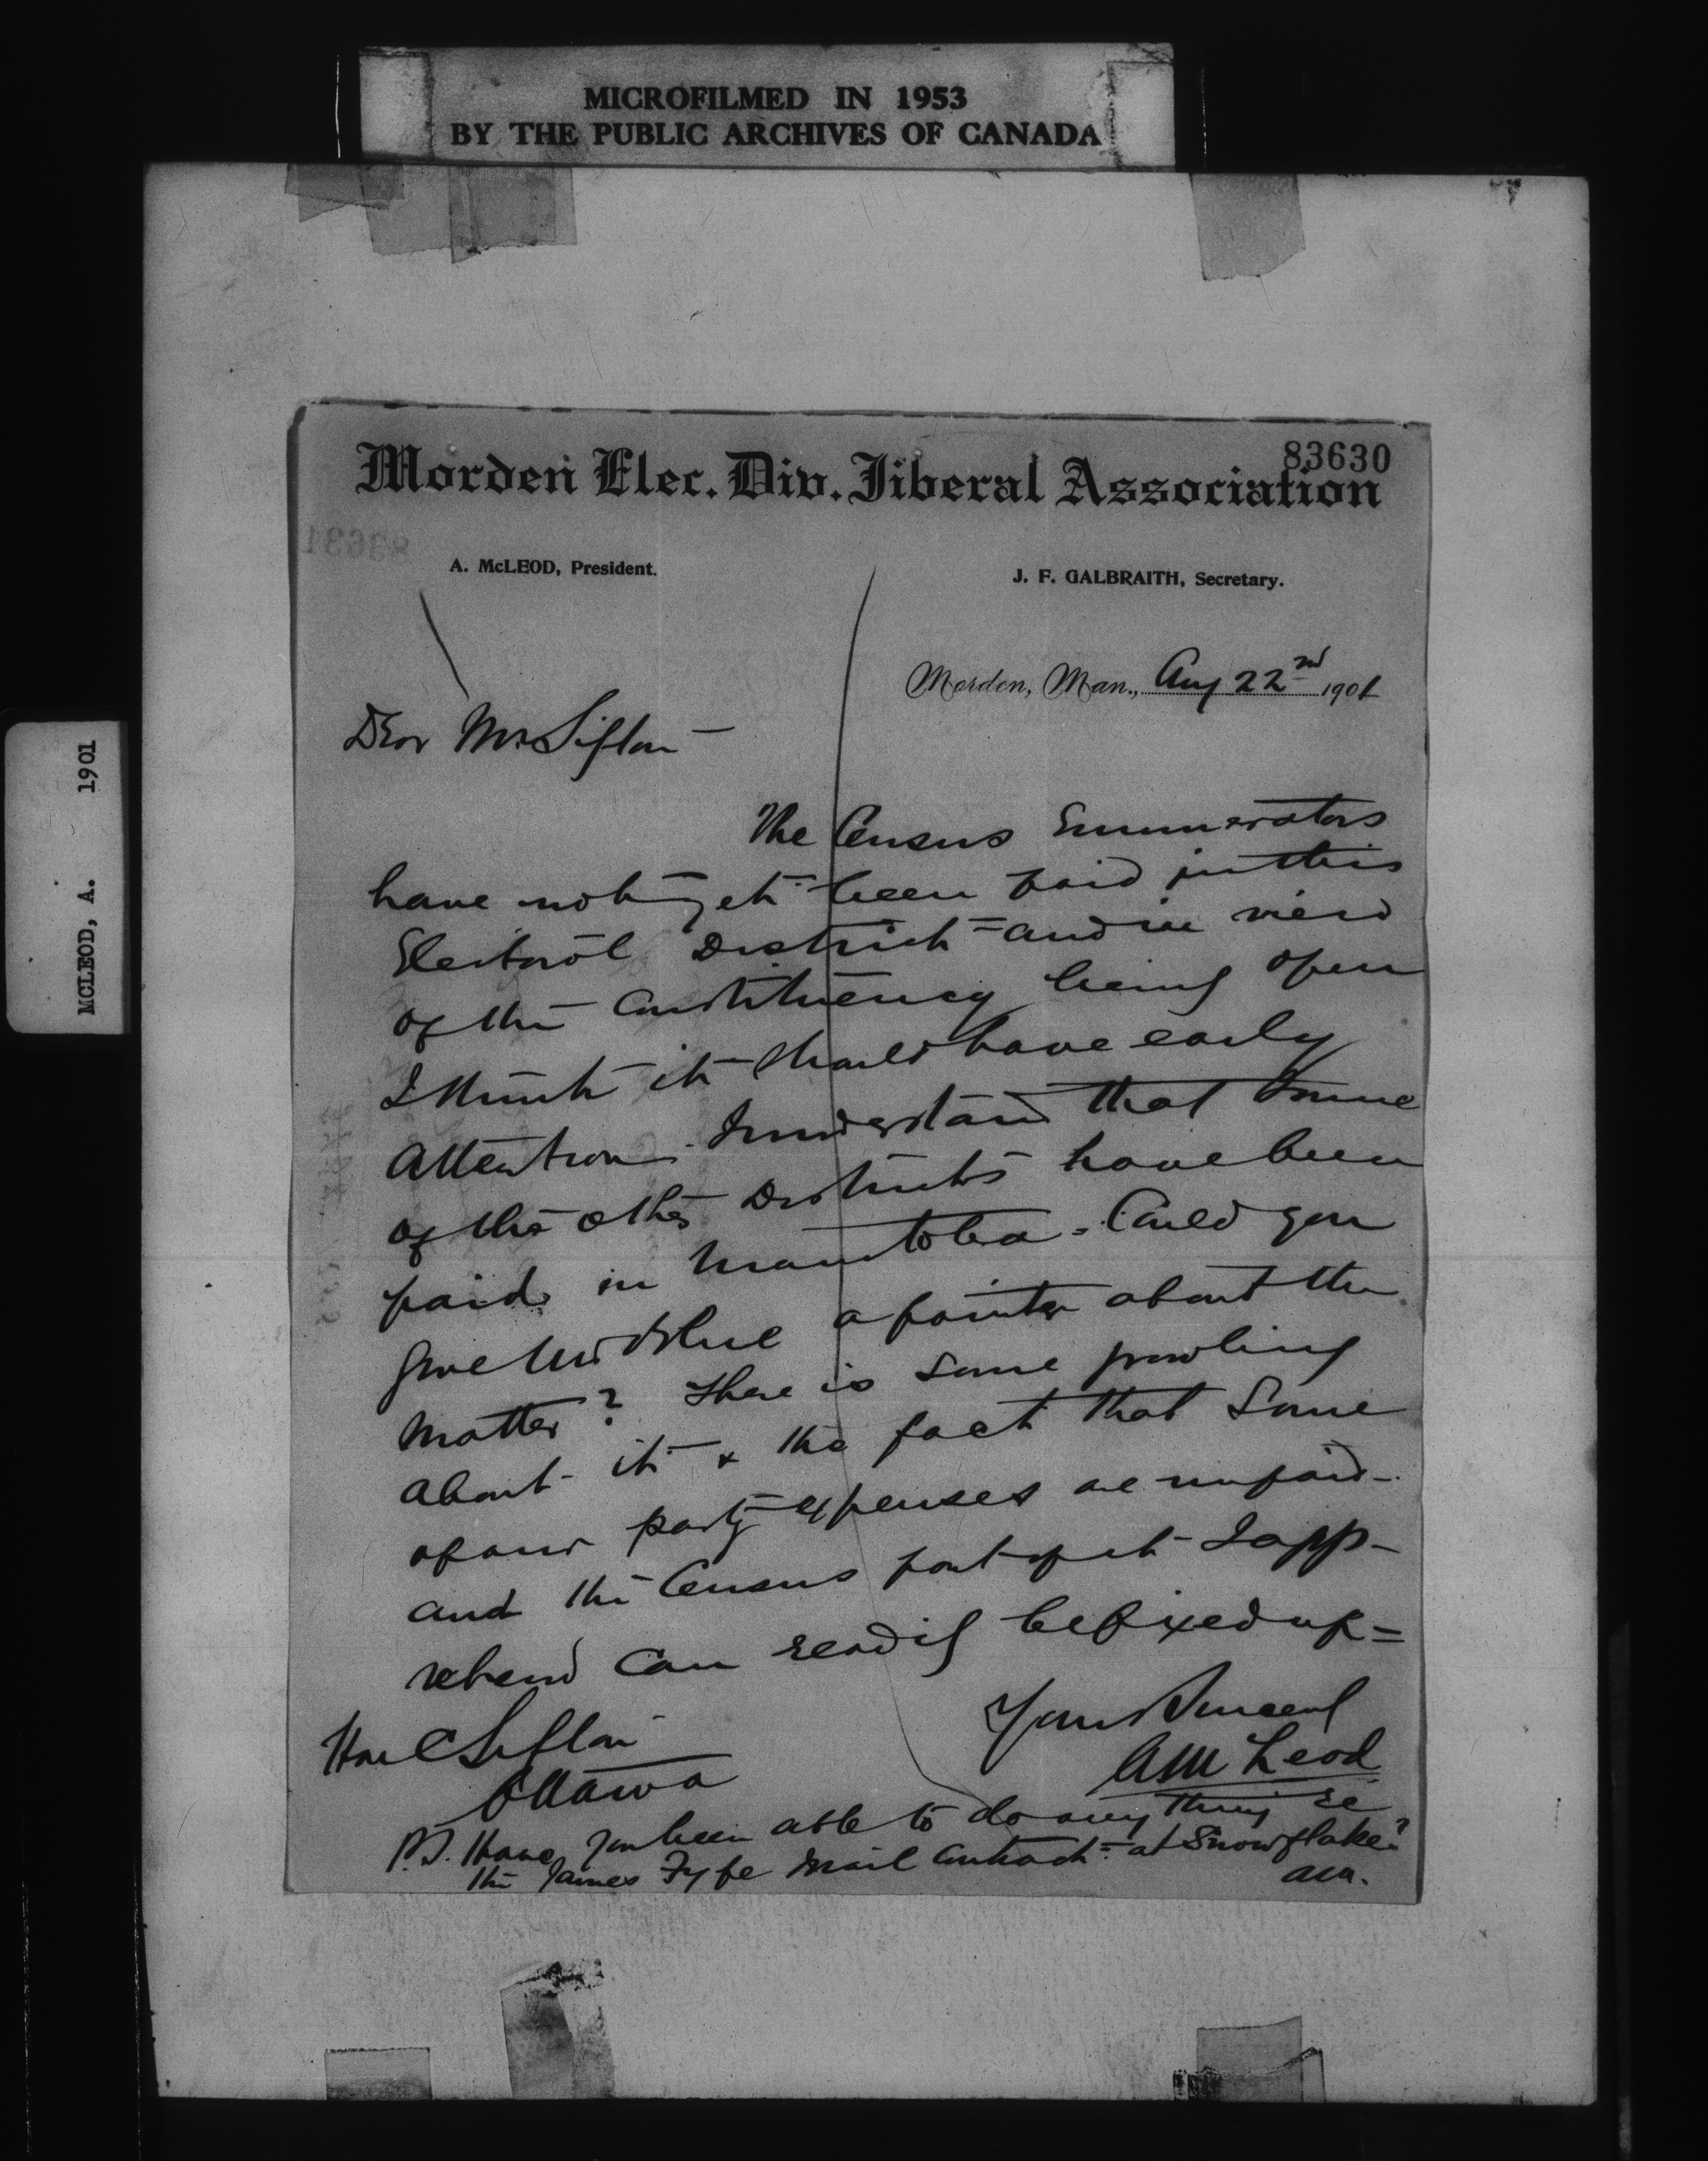 MICROFILMED IN 1953
BY THE PUBLIC ARCHIVES OF CANADA
MCLEOD, A. 1901
83630
Morden Elec. Div. Liberal Association
83631
A. McLEOD, President.
J. F. GALBRAITH, Secretary.
Morden, Man., Aug 22nd 1901
Dear Mr Sifton —
The Census Enumerators
have not yet been paid in this
Electoral District - and in view
of the Constituency being open
I think it should have early
attention. I understand that some
of the other Districts have been
paid in Manitoba. Could you
give Mr Blue a pointer about the
matter? There is some growling
about it & the fact that some
of our party expenses are unpaid -
and the Census part of it I app-
rehend can readily be fixed up =
Yours Sincerely
A McLeod
Hon C Sifton
Ottawa
P.S. Have you been able to do anything re
the James Fyfe Mail Contract - at Snowflake?